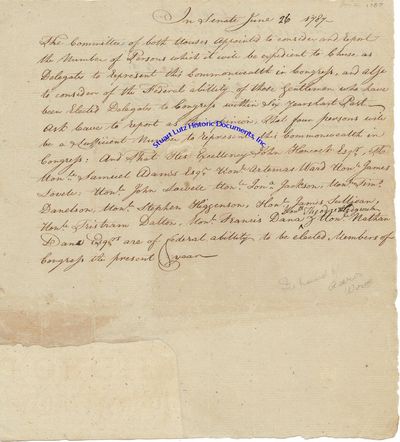 In Senate June 26 1787
The Committee of both Houses appointed to consider and report
the Number of Persons which it will be expedient to Chuse as
Delegates to represent this Commonwealth in Congress, and also
to consider of the Federal ability of those Gentlemen who have
been Elected Delegates to Congress within Six Years last Past
Ask Leave to report as Opinion, that four persons will
be a sufficient Number to represent this Commonwealth in
Congress: And That His Excellency John Hancock Esqr. the
Honl. Samuel Adams Esqr. Honl. Artemas Ward Honl. James
Lovell, Honl. John Lowell Honl. Jona. Jackson, Honl.
Danelson, Honl. Stephen Higgenson, Honl. James Sullivan,
Honl. Tristram Dalton, Honl. Francis Dana & Honl. Nathan
Dane Esqrs. are of Federal ability to be elected Members of
Congress the present Year
Stuart Lutz Historic Documents, Inc.